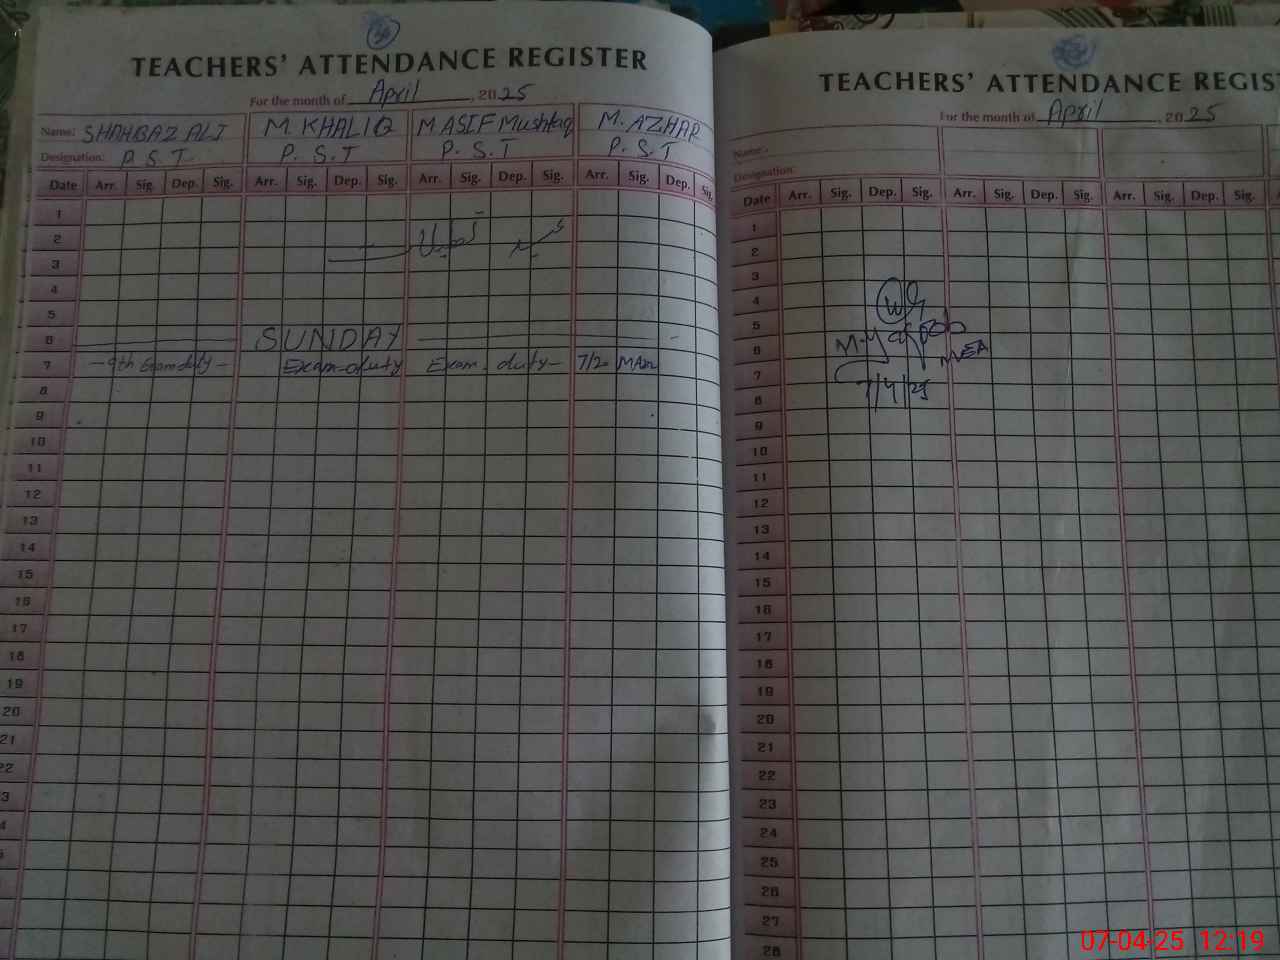 TEACHERS' ATTENDANCE REGISTER
For the month of April, 2025
Name: SHAHBAZ ALI M. KHALIQ M ASIF Mushtaq M. AZHAR
Designation: P.S.T. P.S.T P.S.T P.S.T
Date Arr. Sig. Dep. Sig. Arr. Sig. Dep. Sig. Arr. Sig. Dep. Sig. Arr. Sig. Dep. Sig.
1
2
3
4
5
6 SUNDAY
7 -9th Exam duty- Exam-duty Exam. duty-
8
9
10
11
12
13
14
15
16
17
18
19
20
21
22
3
4
TEACHERS' ATTENDANCE REGIST
For the month of April, 2025
Name:
Designation:
Date Arr. Sig. Dep. Sig. Arr. Sig. Dep. Sig. Arr. Sig. Dep. Sig.
1
2
3
4
5
6
7
MEA
7/4/25
8
9
10
11
12
13
14
15
16
17
18
19
20
21
22
23
24
25
26
27
28
07-04-25 12:19